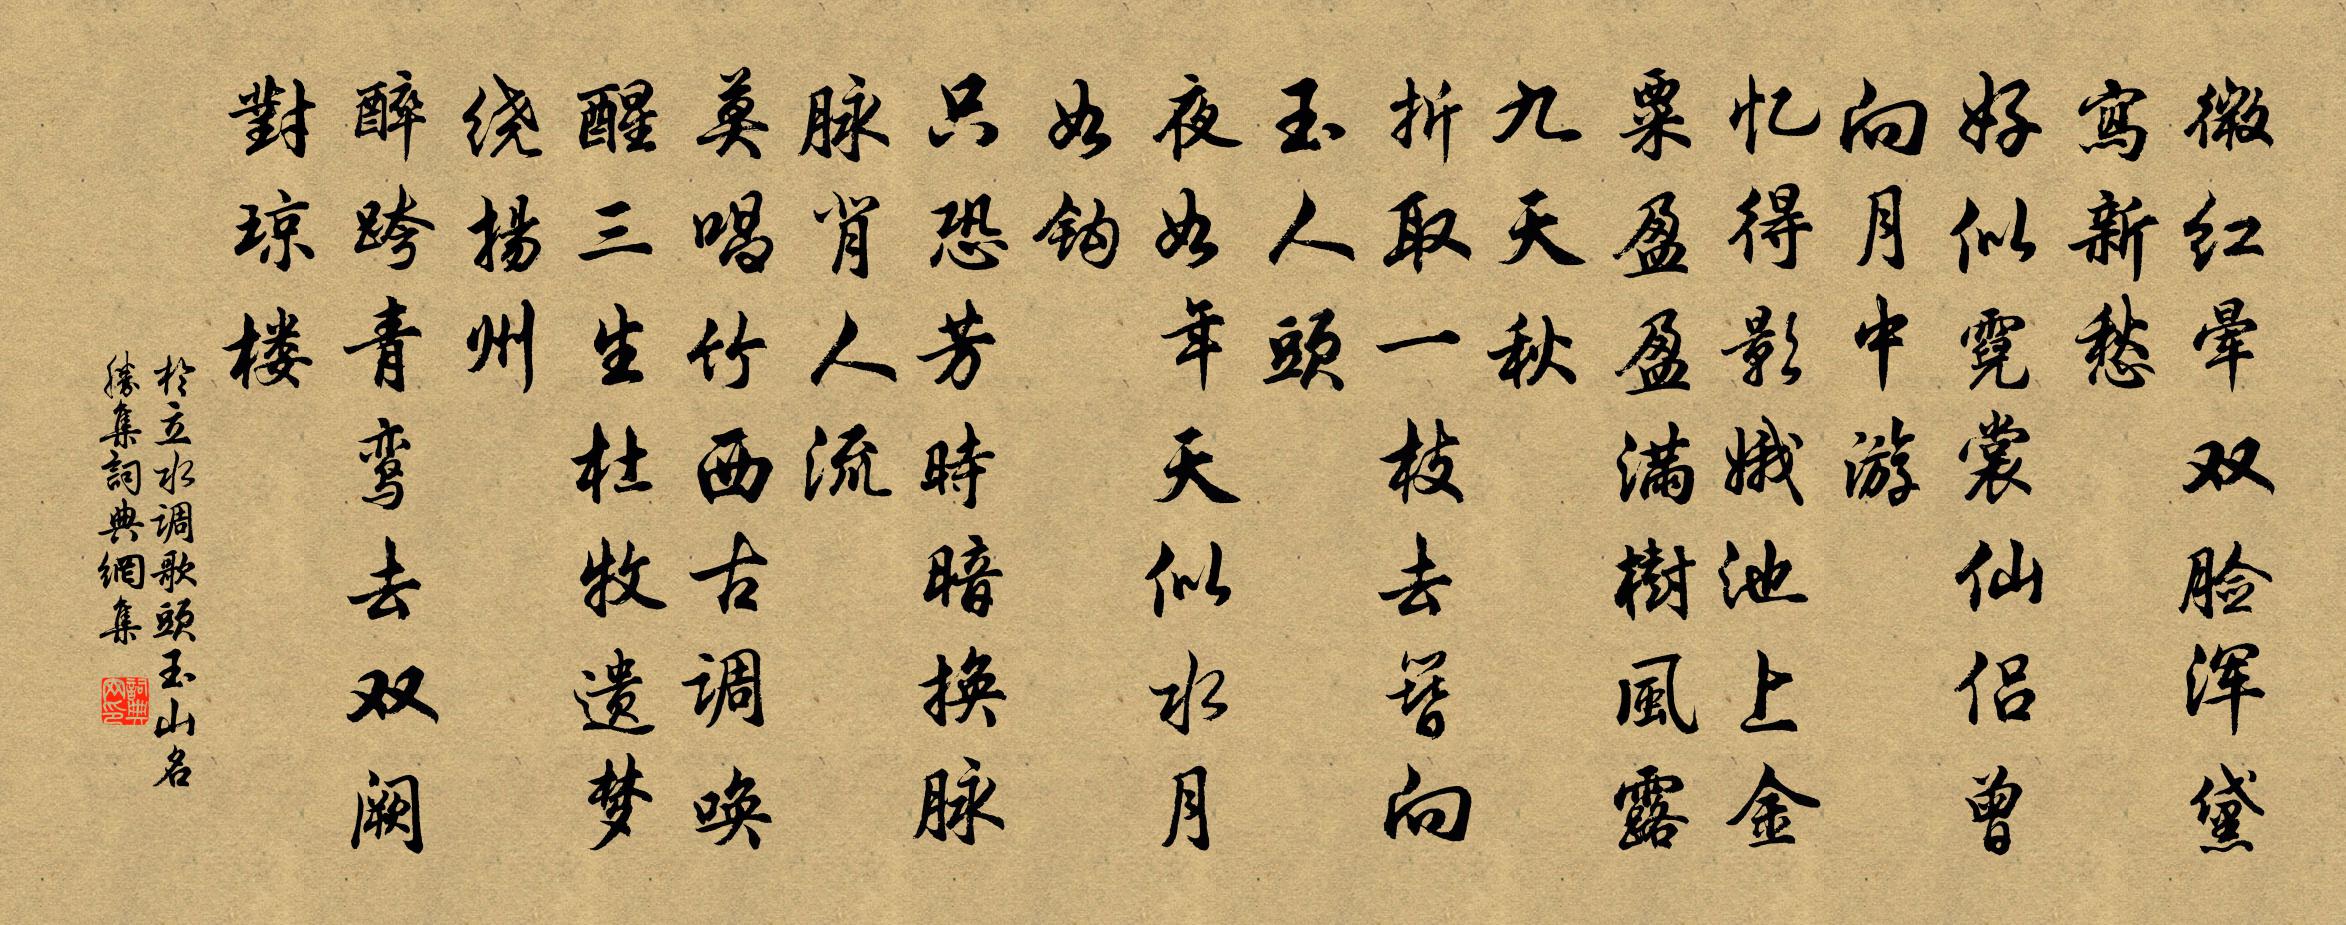 微红晕双脸浑黛
寫新愁
好似霓裳仙侣曾
向月中游
忆得影娥池上金
粟盈盈满樹風露
九天秋
折取一枝去簪向
玉人頭
夜如年天似水月
如钩
只恐芳時暗换脉
脉肖人流
莫唱竹西古调唤
醒三生杜牧遗梦
绕揚州
醉跨青鸾去双阙
對琼楼
於立水调歌頭玉山名
勝集詞典網集
詞典网印